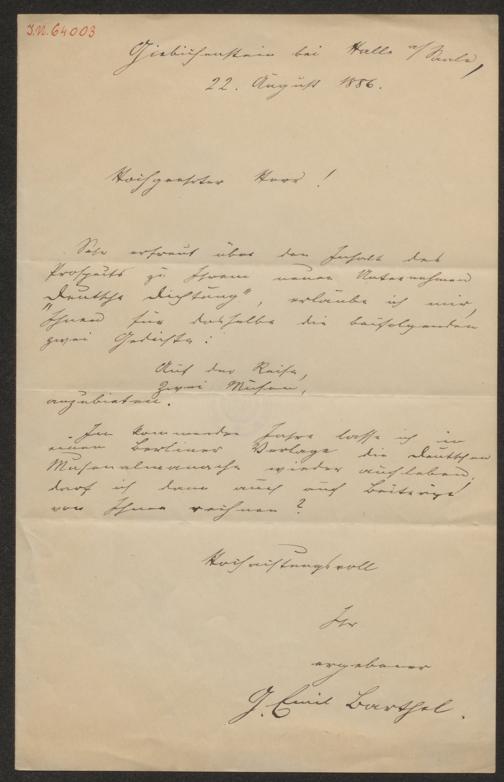 J.N. 64003
Giebichenstein bei Halle a/Saale,
22. August 1886.
Hochgeehrter Herr!
Sehr erfreut über den Inhalt des
Prospekts zu Ihrem neuen Unternehmen
"Deutsche Dichtung", erlaube ich mir,
Ihnen für dasselbe die beifolgenden
zwei Gedichte:
Auf der Reise,
Zwei Musen,
anzubieten.
Im kommenden Jahre lasse ich in
einem Berliner Verlage die Deutschen
Musenalmanache wieder aufleben,
darf ich dann auch auf Beiträge
von Ihnen rechnen?
Hochachtungsvoll
Ihr
ergebener
G. Emil Barthel.